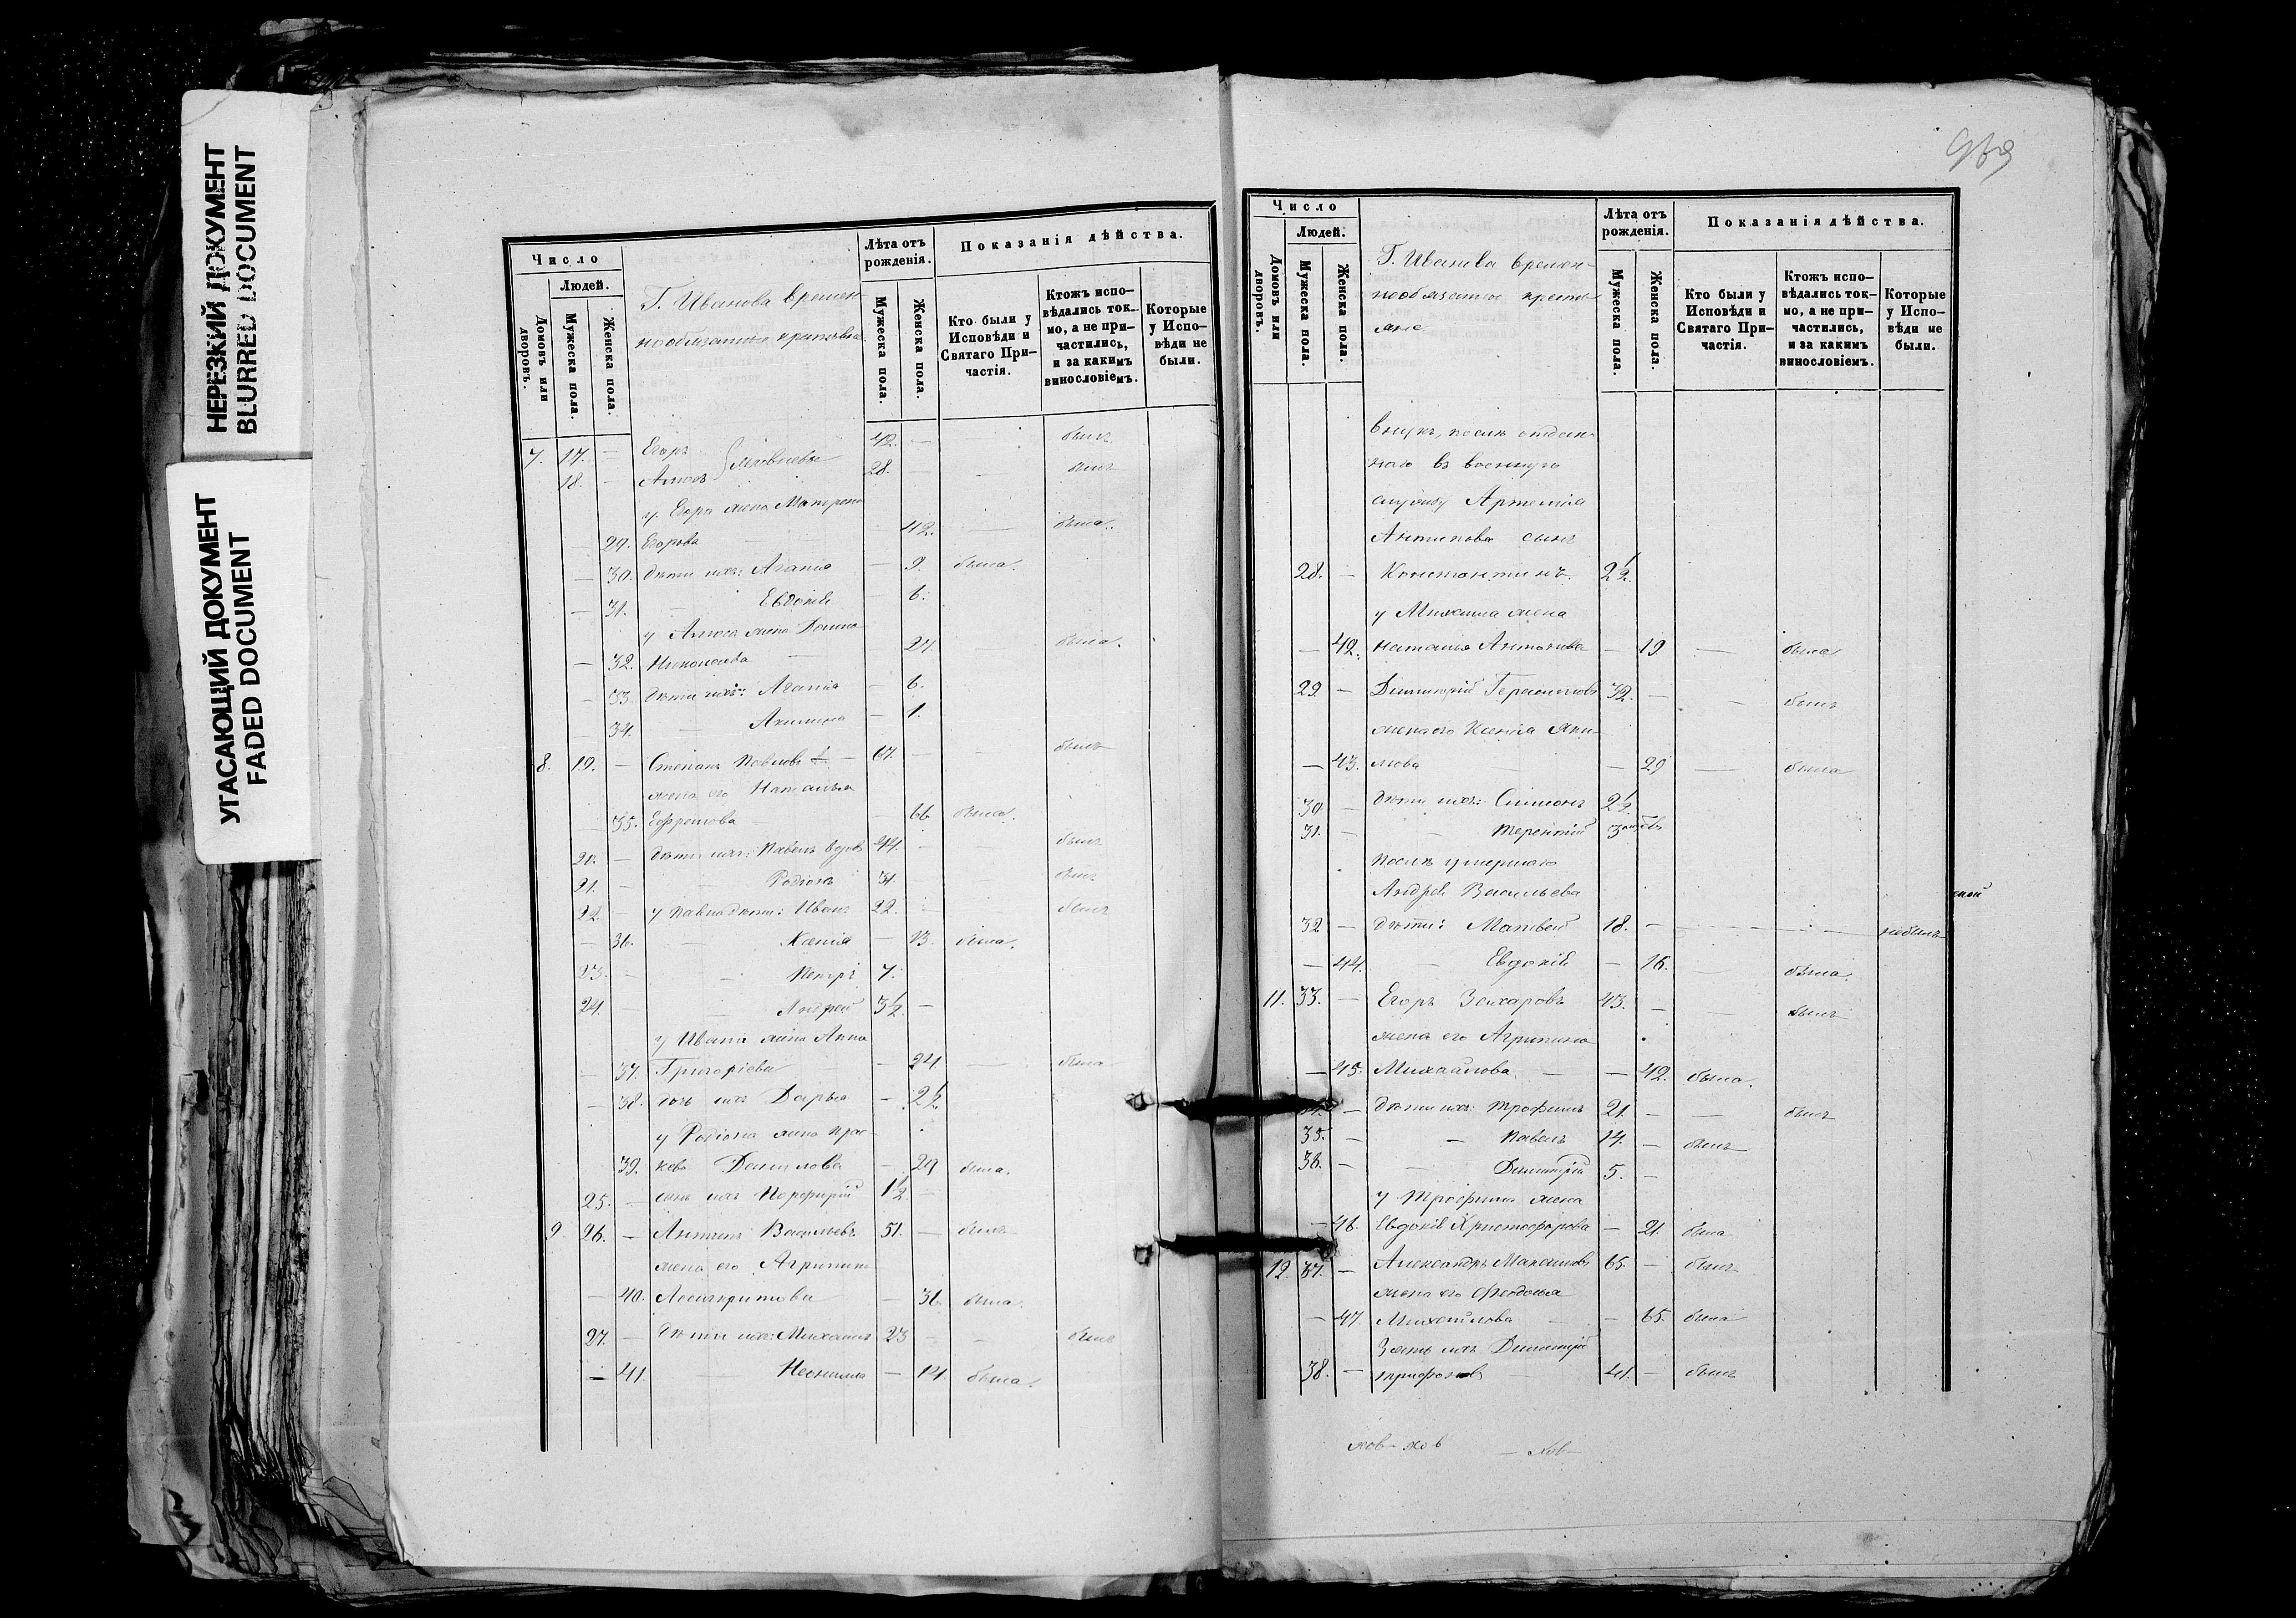 НЕРЕЗКИЙ ДОКУМЕНТ
BLURRED DOCUMENT
УГАСАЮЩИЙ ДОКУМЕНТ
FADED DOCUMENT
Число
Людей.
Домовъ или дворовъ.
Мужеска пола.
Женска пола.
Г. Иванова времен-
нообязанные крестьяне
Лѣта отъ рожденія.
Мужеска пола.
Женска пола.
Показанія дѣйства.
Кто были у Исповѣди и Святаго При-частія.
Ктожъ испо-вѣдались ток-мо, а не при-частились, и за какимъ винословіемъ.
Которые у Испо-вѣди не были.
7. 17. — Егоръ 42. — — былъ
18. — 28. — — былъ
у Егора жена Матрена
29. Егорова — 42. — была.
— 30. дѣти ихъ: Агапія — 9. была.
— 31. — Евдокія — 6.
у жена Домна
— 32. 27 была.
— 33. дѣти ихъ: Агапія — 6.
34. — Акилина — 1.
8. 19. — Степанъ Павловъ — 67. — — былъ
жена его Наталья
35. Ефремова — 66 была.
20. — дѣти ихъ: Павелъ вдовъ 44. — — былъ
21. — — Родіонъ 31. — былъ
22. — у Павла дѣти: Иванъ 22. — — былъ
— 36. — Ксенія — 13. была.
23. — — Петръ 7.
24. — — Андрей 3½. —
у Ивана жена Анна
— 37. Григоріева — — 24 — была
— 38. дочь ихъ Дарья — 2½.
у Родіона жена Прас-
39. кева Данилова — 29 была.
25. — сынъ ихъ Порфирій 1½. —
9. 26. — Антипъ Васильевъ 51. — былъ
жена его Агрипина
— 40. — 36. была.
27. — дѣти ихъ: Михаилъ 23 — — былъ
— 41. — Неонила — 14 была.
Число
Людей.
Домовъ или дворовъ.
Мужеска пола.
Женска пола.
Г. Иванова времен-
нообязанные кресть-
яне
Лѣта отъ рожденія.
Мужеска пола.
Женска пола.
Показанія дѣйства.
Кто были у Исповѣди и Святаго При-частія.
Ктожъ испо-вѣдались ток-мо, а не при-частились, и за какимъ винословіемъ.
Которые у Испо-вѣди не были.
внукъ, послѣ отдан-
наго въ военную
службу Артемія
Антипова сынъ
28. — Константинъ. 2½.
у Михаила жена
— 42. Наталья Антонова — 19 — была
29. — Димитрій Герасимовъ 32. — — былъ
жена его Ксенія Яки-
— 43. мова — — 29 — была
30 — дѣти ихъ: Симеонъ 2½.
31. — — Терентій
Послѣ умершаго
Андрея Васильева
32 — дѣти: Матвей 18. — небылъ
— 44. — Евдокія — 16. — была.
11. 33. — Егоръ Захаровъ 43. — — былъ
жена его Агрипина
— 45. Михайлова — — 42. была.
— дѣти ихъ: Трофимъ 21. — — былъ
35. — — Павелъ 14. — былъ
36. — — Димитрій 5. —
у Трофима жена
— 46. Евдокія Христофорова — 21. была
12. 37. — Александръ Максимовъ 65. — былъ
жена его Феодосья
— 47. Михайлова — — 65. была
Зять ихъ Димитрій
38. — Трифоновъ — 41. — былъ